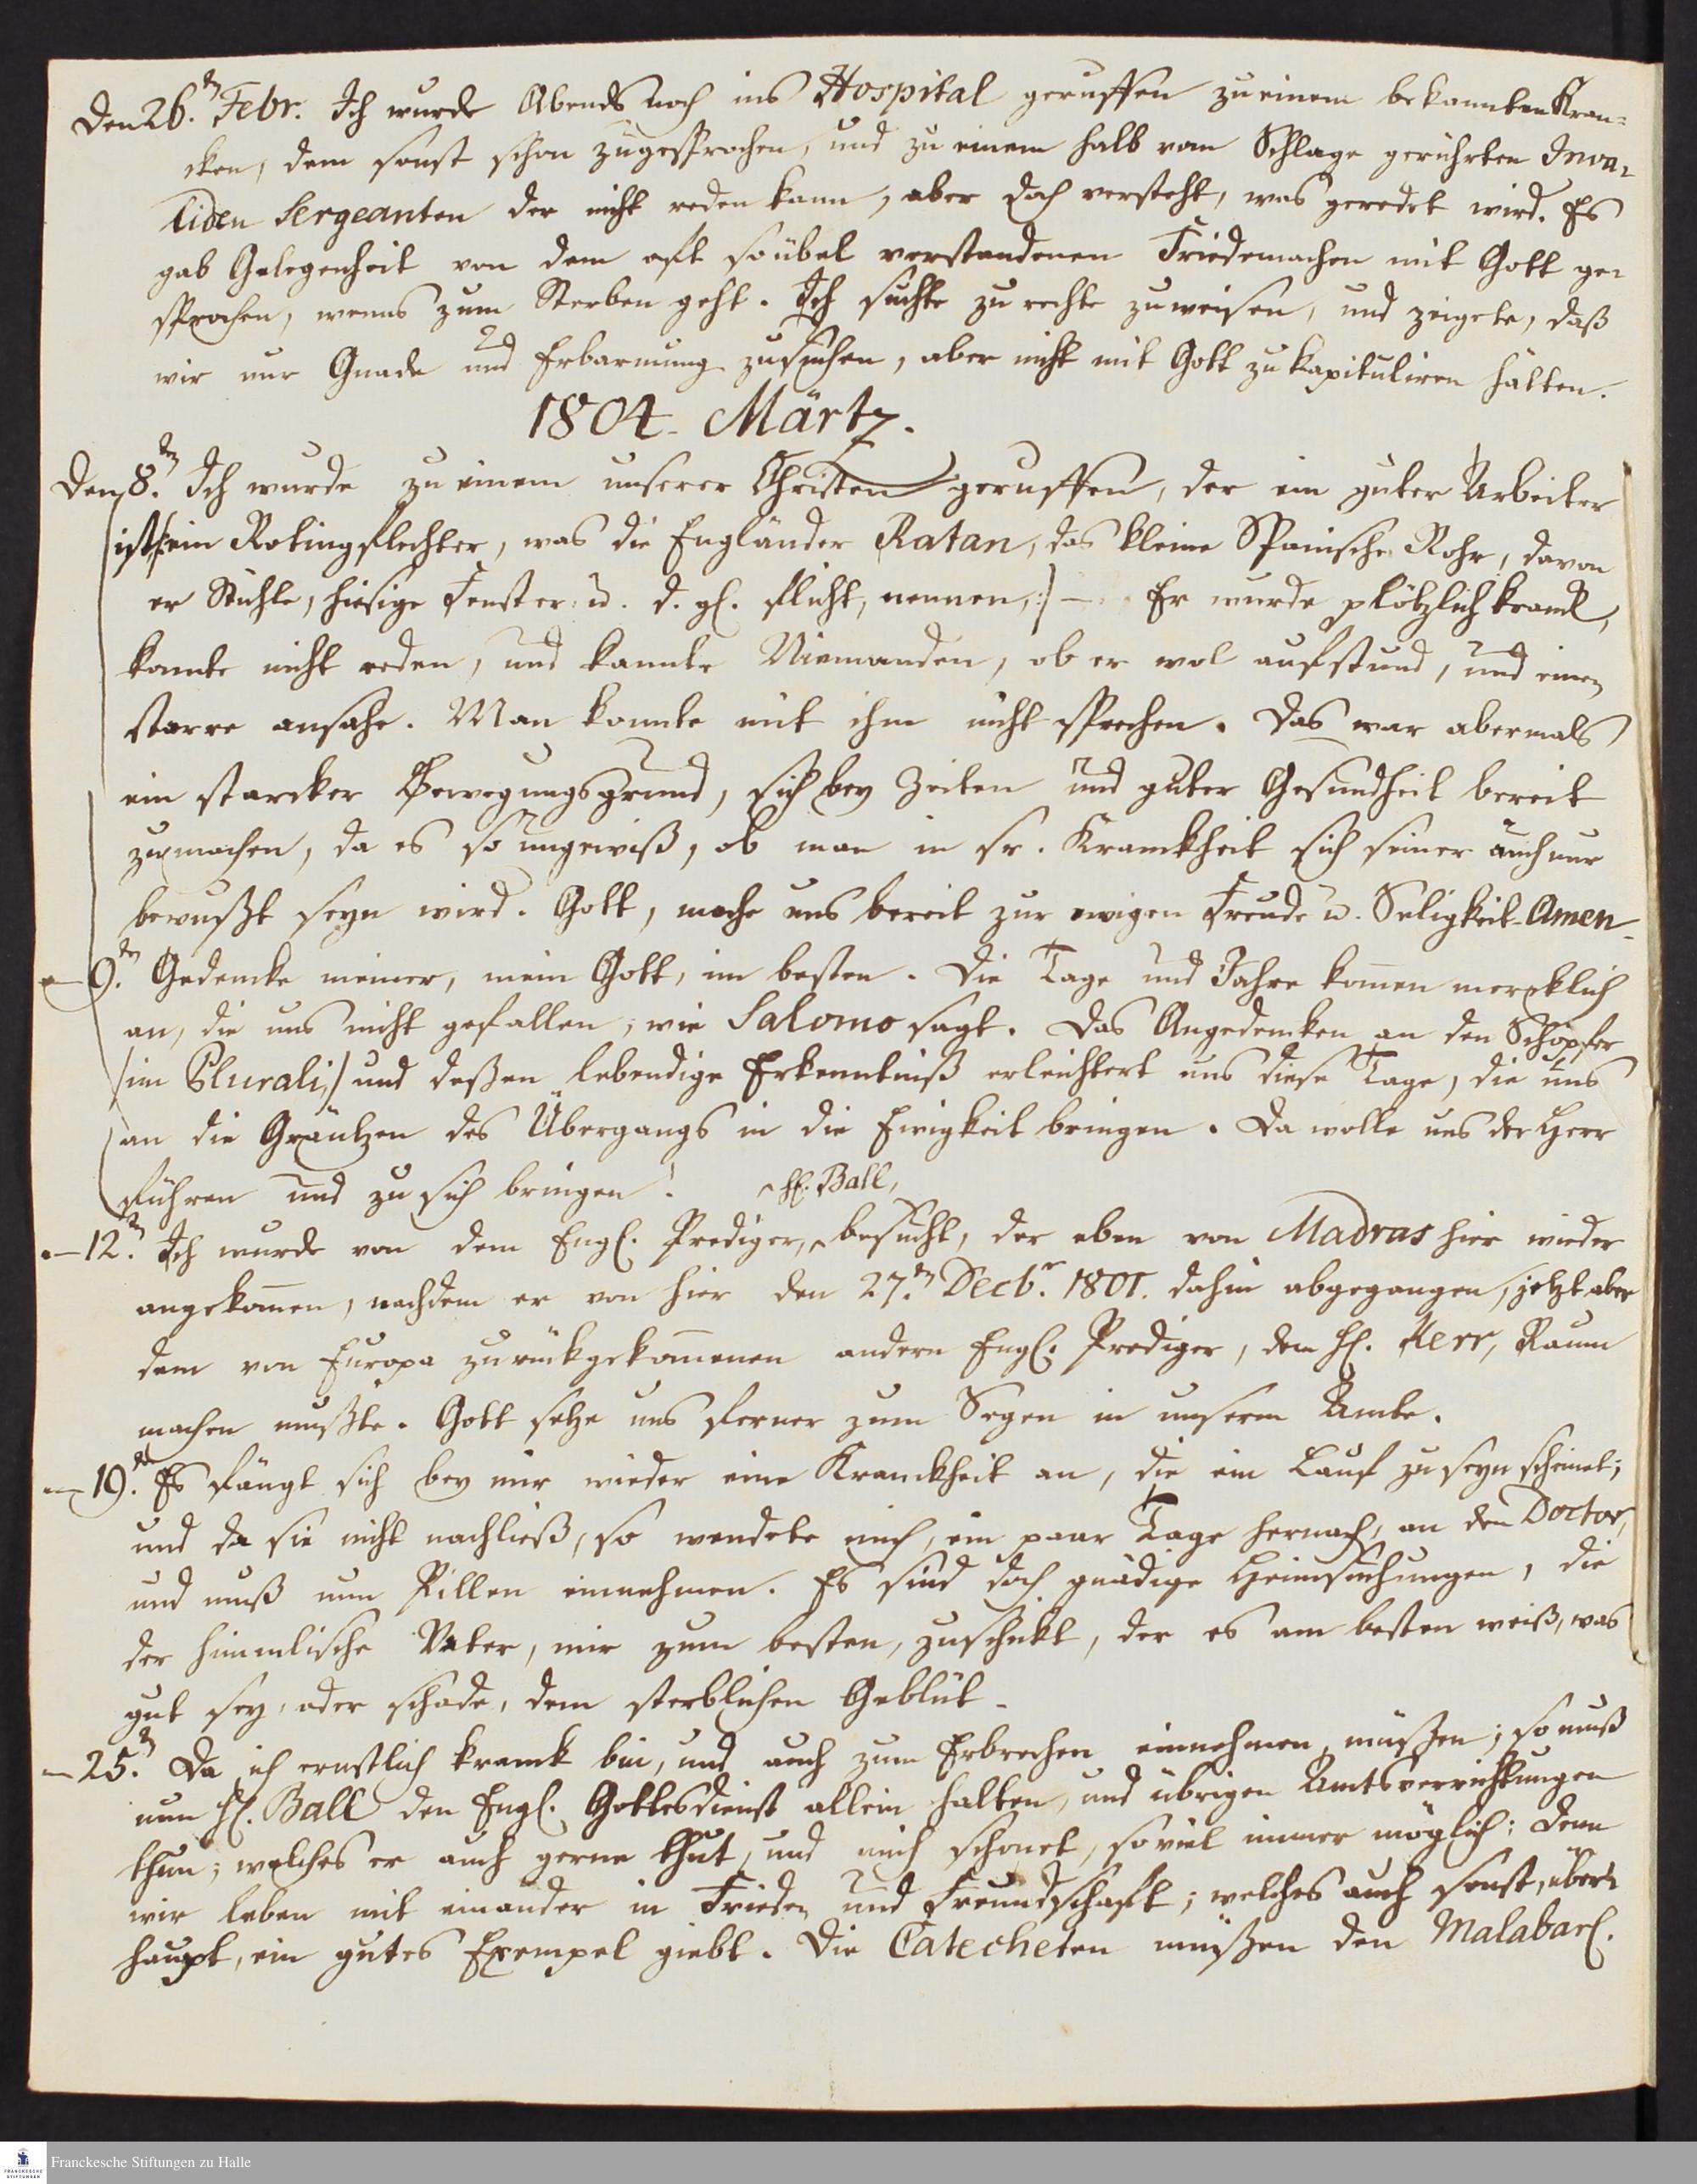 Den 26.ten Febr. Ich wurde Abends noch ins Hospital geruffen zu einem bekannten Kran-
cken, dem sonst schon zugesprochen, und zu einem halb vom Schlage gerührten Inva-
liden Sergeanten der nicht reden kann, aber doch versteht, was geredet wird. Es
gab Gelegenheit von dem oft so übel verstandenen Friedemachen mit Gott zu
sprechen, wenns zum Sterben geht. Ich suchte zu rechte zu weisen, und zeigete, daß
wir nur Gnade und Erbarmung zu suchen, aber nicht mit Gott zu kapituliren hätten.
1804. Märtz.
Den 8.ten Ich wurde zu einem unserer Christen geruffen, der ein guter Arbeiter
ist /: ein Rotingflechter, was die Engländer Ratan, das kleine Spanische Rohr, davon
er Stühle, hiesige Fenster u. d. gl. flicht, nennen, :/ — Er wurde plötzlich kranck,
konnte nicht reden, und kannte Niemanden, ob er wol aufstund, und einen
starre ansahe. Man konnte mit ihm nicht sprechen. Das war abermals
ein starcker Bewegungsgrund, sich bey Zeiten und guter Gesundheit bereit
zu machen, da es so ungewiß, ob man in sr. Kranckheit sich seiner auch nur
bewußt seyn wird. Gott, mache uns bereit zur ewigen Freude u. Seligkeit. Amen.
— 9.ten Gedencke meiner, mein Gott, im besten. Die Tage und Jahre kommen mercklich
an, die uns nicht gefallen, wie Salomo sagt. Das Angedencken an den Schöpfer
/im Plurali,/ und deßen lebendige Erkenntniß erleichtert uns diese Tage, die uns
an die Gräntzen des Übergangs in die Ewigkeit bringen. Da wolle uns der Herr
führen und zu sich bringen!
H. Ball,
— 12.ten Ich wurde von dem Engl. Prediger, besucht, der eben von Madras hier wieder
angekommen, nachdem er von hier den 27.ten Decbr. 1801. dahin abgegangen, jetzt aber
dem von Europa zurückgekommenen andern Engl. Prediger, dem H. Kerr, Raum
machen mußte. Gott setze uns ferner zum Segen in unserm Amte.
— 19.ten Es fängt sich bey mir wieder eine Kranckheit an, die ein Lauf zu seyn scheinet;
und da sie nicht nachließ, so wendete mich, ein paar Tage hernach, an den Doctor,
und muß nun Pillen einnehmen. Es sind doch gnädige Heimsuchungen, die
der himmlische Vater, mir zum besten, zuschickt, der es am besten weiß, was
gut sey, oder schade, dem sterblichen Geblüt.
— 25.ten Da ich ernstlich kranck bin, und auch zum Erbrechen einnehmen müßen; so muß
nun H. Ball den Engl. Gottesdienst allein halten, und übrigen Amtsverrichtungen
thun; welches er auch gerne thut, und mich schonet, so viel immer möglich: denn
wir leben mit einander in Frieden und Freundschaft; welches auch sonst, über-
haupt, ein gutes Exempel giebt. Die Catecheten müßen den Malabarl.
FRANCKESCHE STIFTUNGEN
Franckesche Stiftungen zu Halle